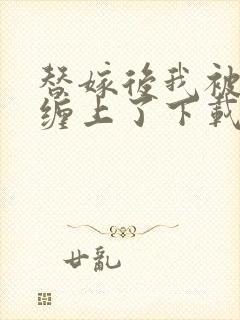 替嫁後我被
缠上了下載
廿亂